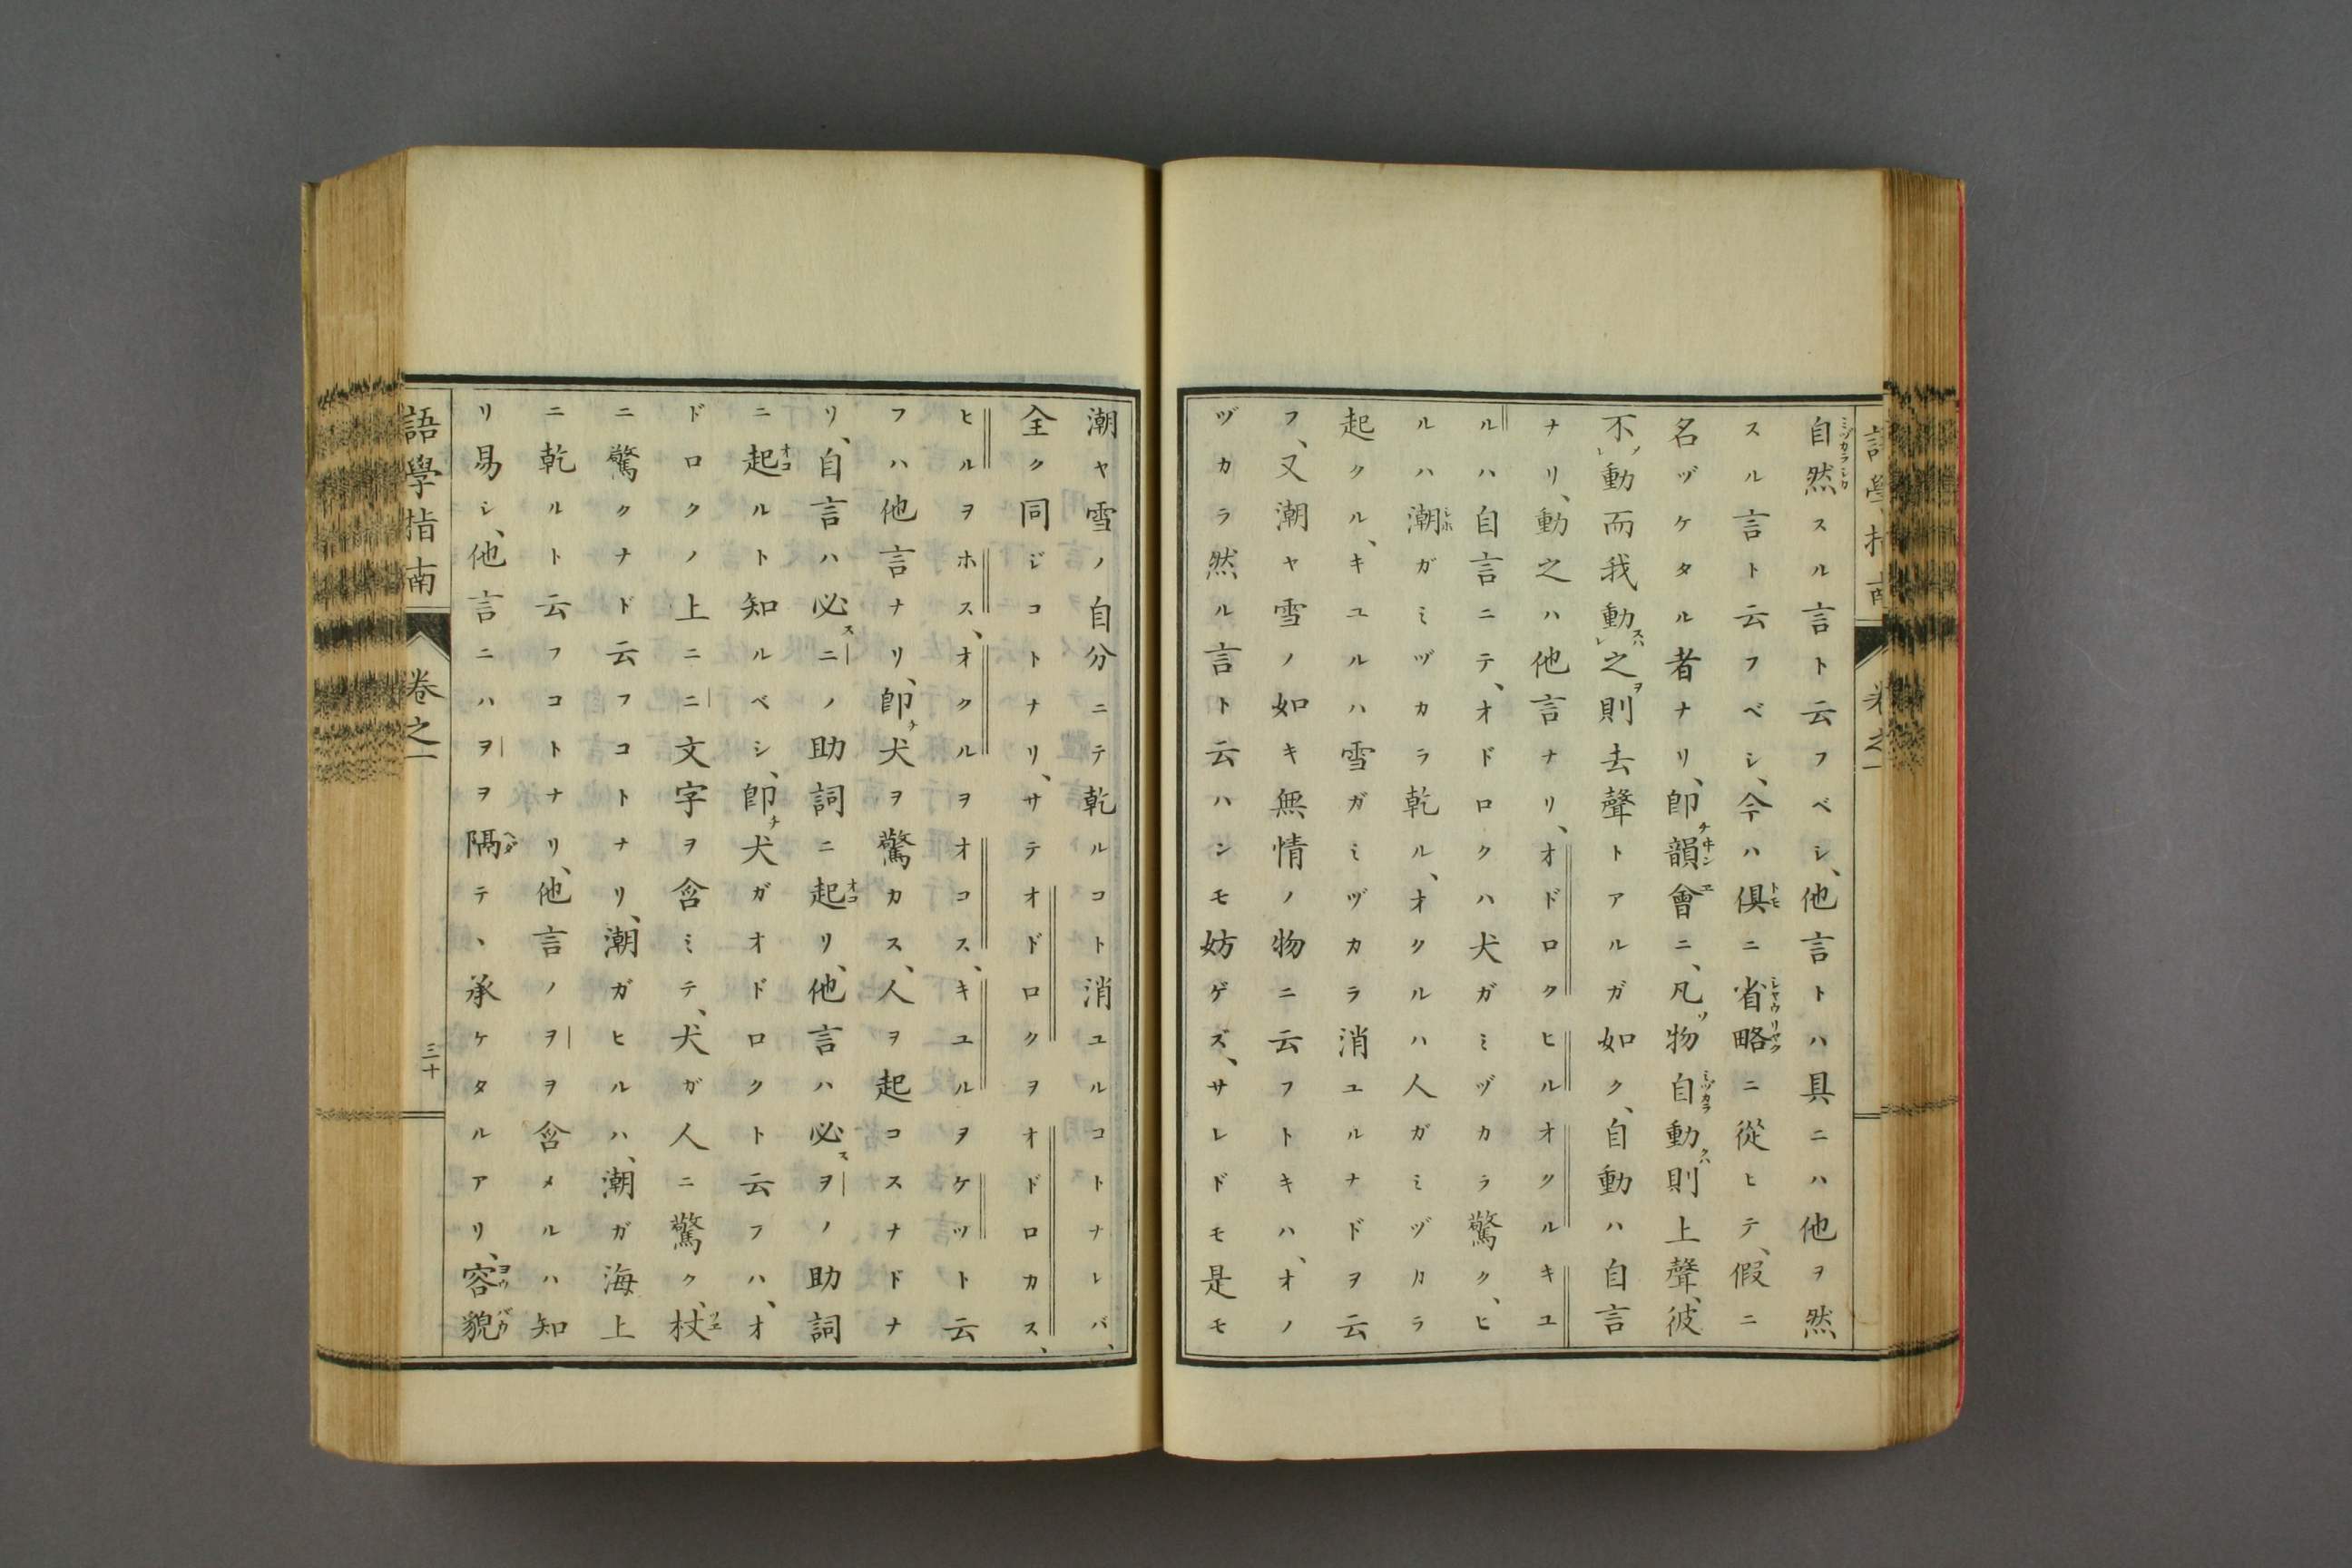 自然スル言ト云フベシ、他言トハ具ニハ他ヲ然
スル言ト云フベシ、今ハ倶ニ省略ニ從ヒテ、假ニ
名ヅケタル者ナリ、卽チ韻會ニ、凡ソ物自動クハ則上聲、彼
不ノレ動而我動スハレ之ヲ則去聲トアルガ如ク、自動ハ自言
ナリ、動之ハ他言ナリ、オドロクヒルオクルキユ
ルハ自言ニテ、オドロクハ犬ガミヅカラ驚ク、ヒ
ルハ潮ガミヅカラ乾ル、オクルハ人ガミヅカラ
起クル、キユルハ雪ガミヅカラ消ユルナドヲ云
フ、又潮ヤ雪ノ如キ無情ノ物ニ云フトキハ、オノ
ヅカラ然ル言ト云ハンモ妨ゲズ、サレドモ是モ
潮ヤ雪ノ自分ニテ乾ルコト消ユルコトナレバ、
全ク同ジコトナリ、サテオドロクヲオドロカス、
ヒルヲホス、オクルヲオコス、キユルヲケツト云
フハ他言ナリ、卽チ犬ヲ驚カス、人ヲ起コスナドナ
リ、自言ハ必スニノ助詞ニ起リ、他言ハ必スヲノ助詞
ニ起ルト知ルベシ、卽チ犬ガオドロクト云フハ、オ
ドロクノ上ニニ文字ヲ含ミテ、犬ガ人ニ驚ク、杖
ニ驚クナド云フコトナリ、潮ガヒルハ、潮ガ海上
ニ乾ルト云フコトナリ、他言ノヲヲ含メルハ知
リ易シ、他言ニハヲヲ隔テヽ承ケタルアリ、容貌
語學指南 卷之一 三十